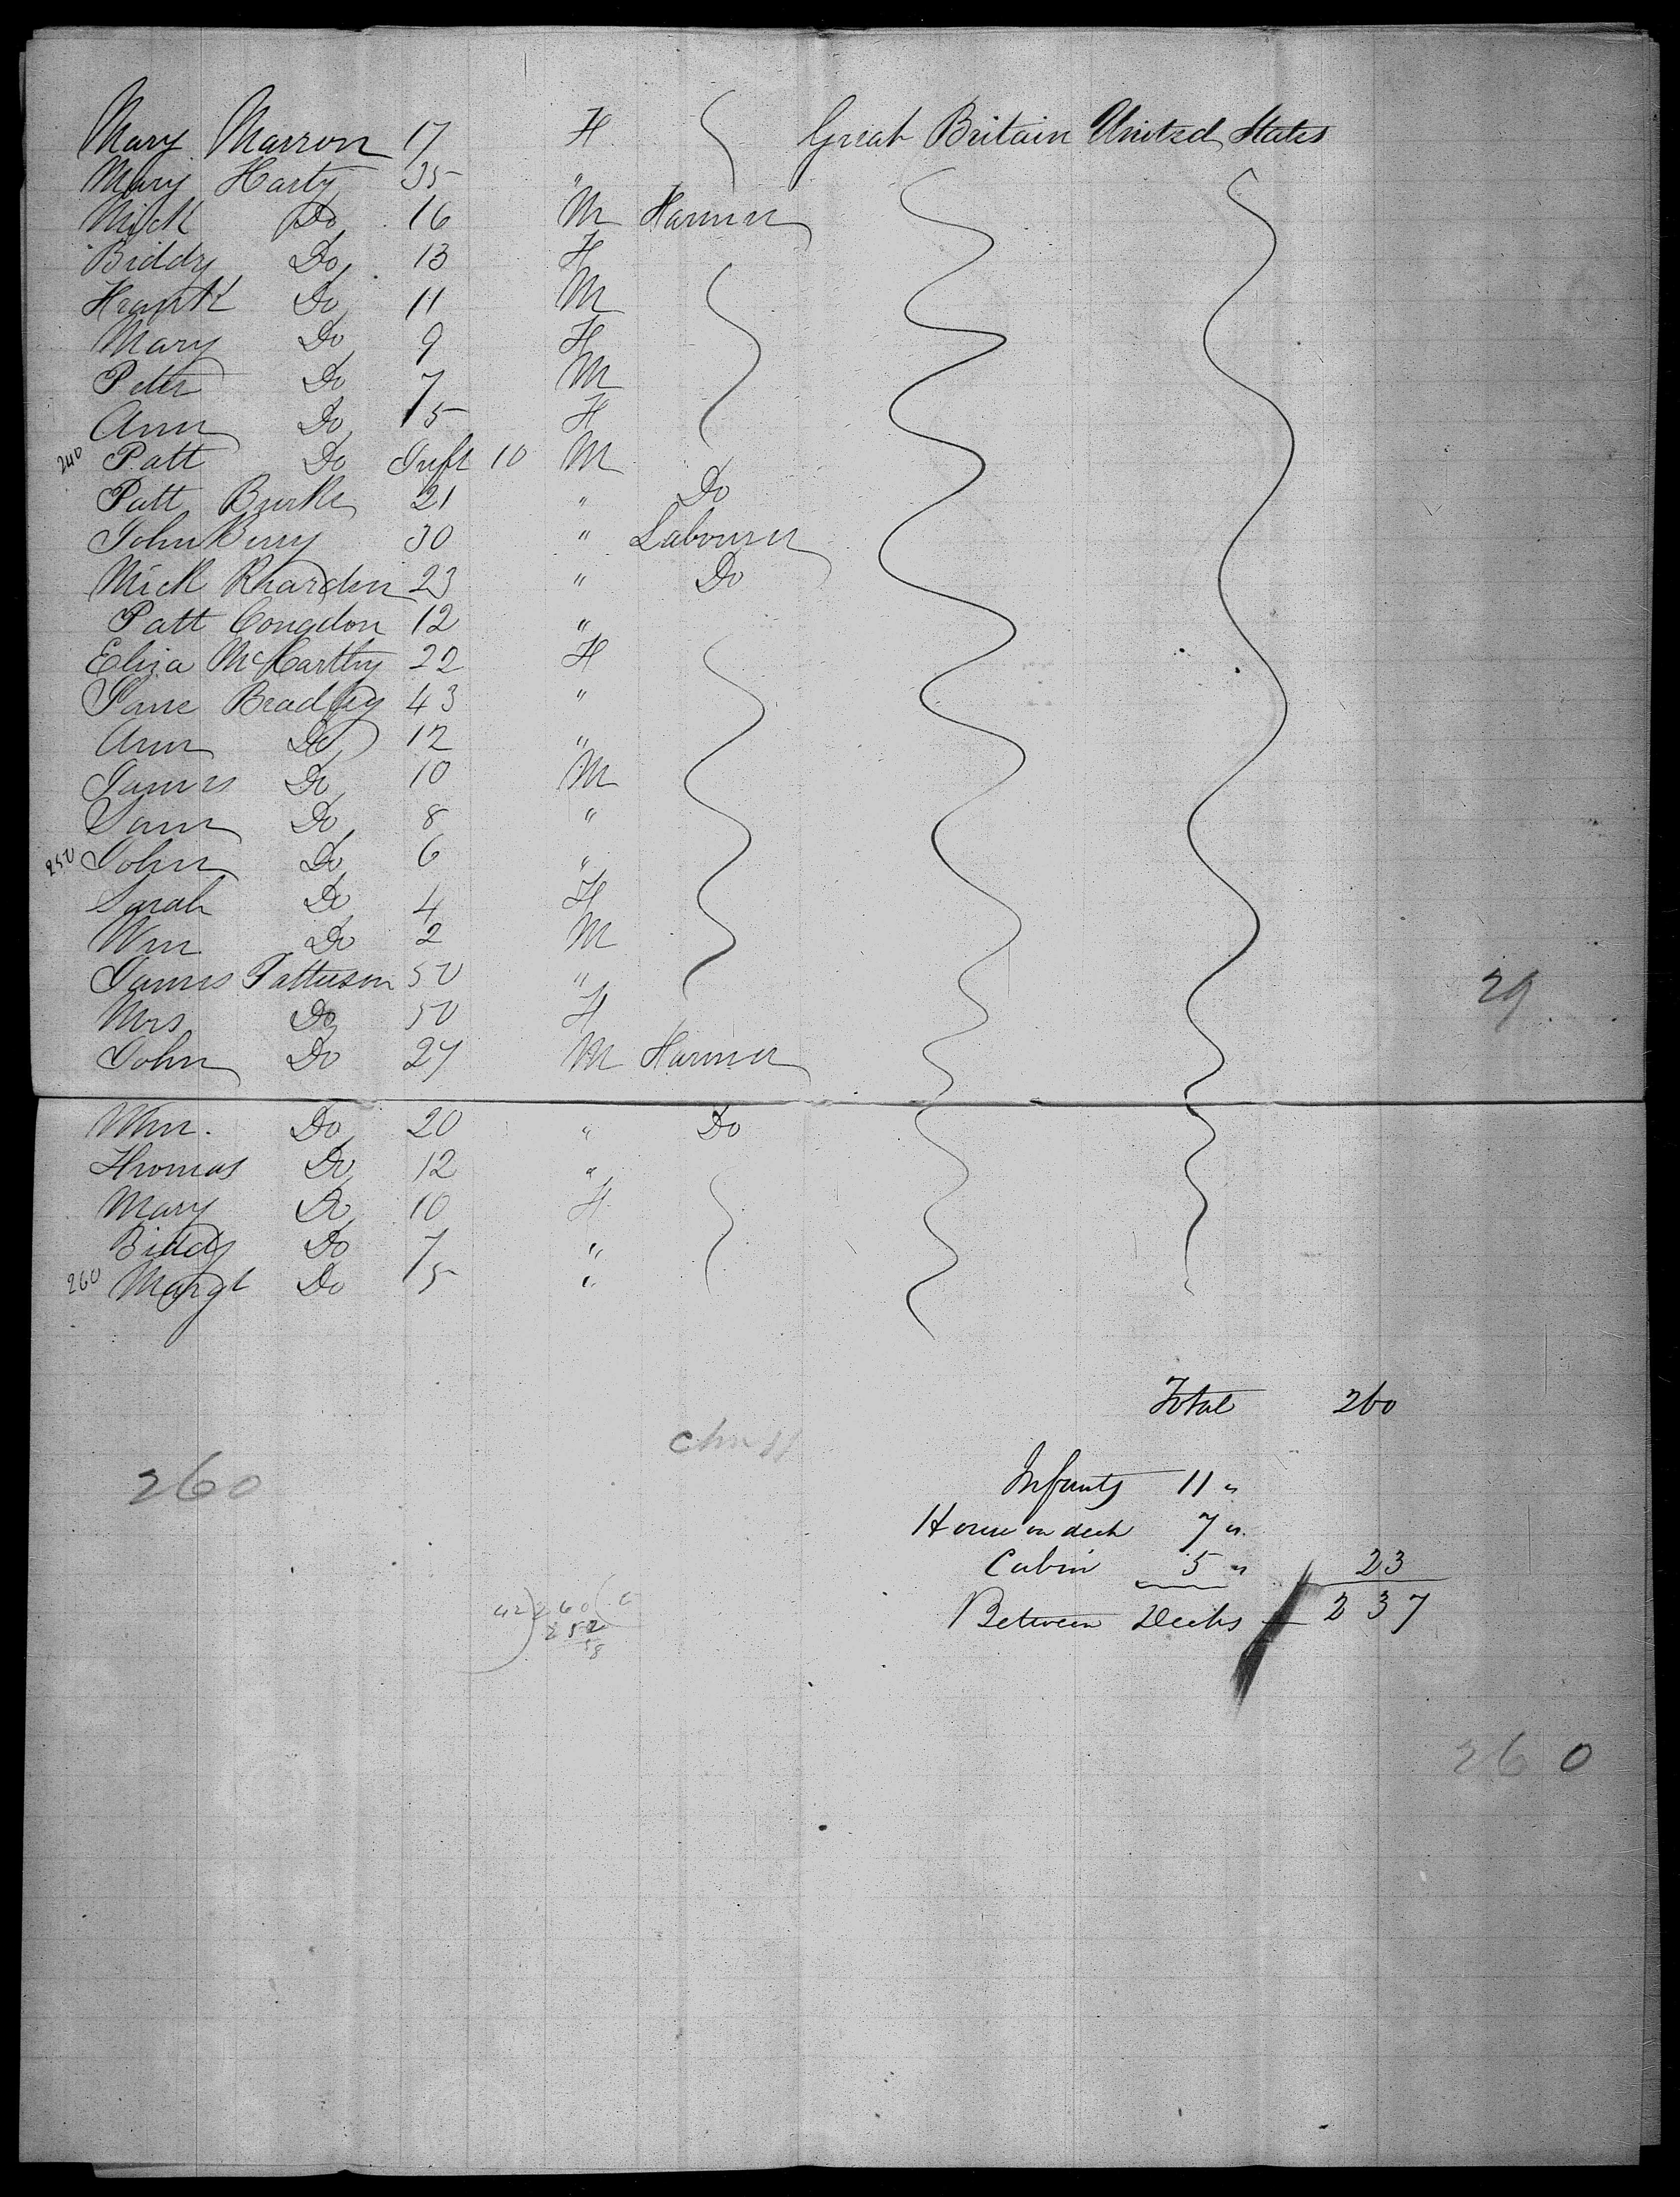 Mary Marron 17 F Great Britain United States
Mary Harty 35 "
Mick Do 16 M Farmer
Biddy Do 13 F
Frank Do 11 M
Mary Do 9 F
Peter Do 7 M
Ann Do 5 F
240 Patt Do Inft 10 M
Patt Burke 21 " Do
John Berry 30 " Labourer
Mick Rhardin 23 " Do
Patt Congdon 12 "
Eliza McCarthy 22 F
Jane Bradley 43 "
Ann Do 12 "
James Do 10 M
Sam Do 8 "
250 John Do 6 "
Sarah Do 4 F
Wm Do 2 M
James Patterson 50 "
29
Mrs Do 50 F
John Do 27 M Farmer
Wm. Do 20 " Do
Thomas Do 12 "
Mary Do 10 F
Biddy Do 7 "
260 Margt Do 5 "
Total 260
260
Infants 11 "
House on deck 7 "
Cabin 5 " 23
Between Decks 237
42)260(6
252
8
260